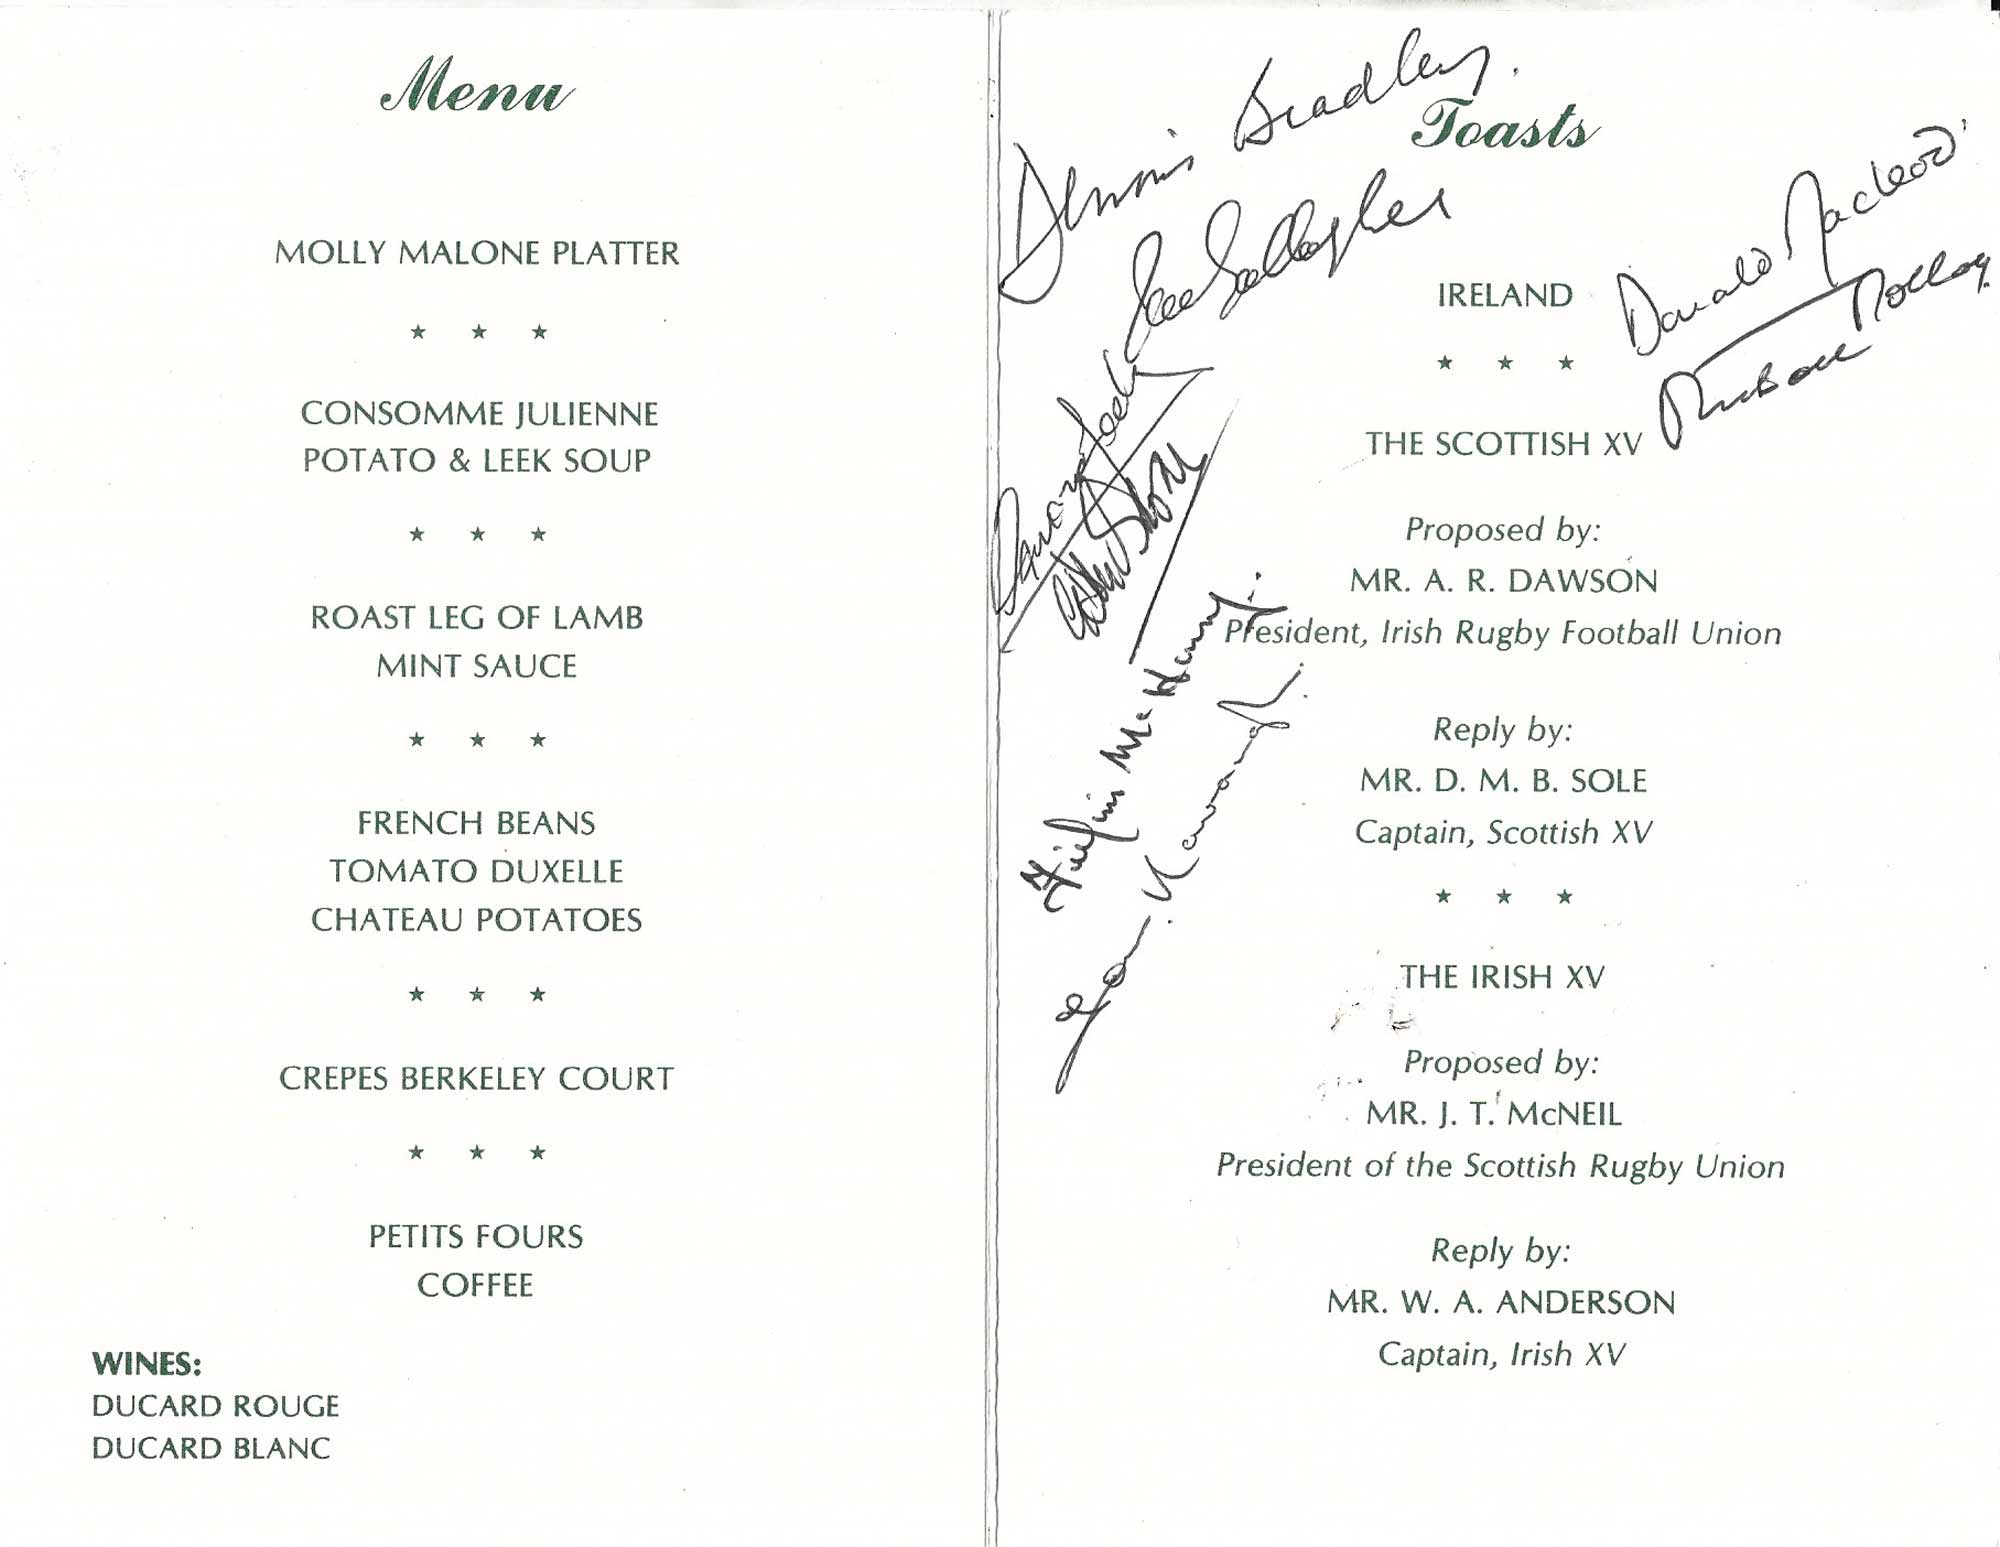 Menu
MOLLY MALONE PLATTER
★ ★ ★
CONSOMME JULIENNE
POTATO & LEEK SOUP
★ ★ ★
ROAST LEG OF LAMB
MINT SAUCE
★ ★ ★
FRENCH BEANS
TOMATO DUXELLE
CHATEAU POTATOES
★ ★ ★
CREPES BERKELEY COURT
★ ★ ★
PETITS FOURS
COFFEE
WINES:
DUCARD ROUGE
DUCARD BLANC
Dennis Bradley.
Toasts
Gallagher
Donald Macleod
Molloy
IRELAND
★ ★ ★
THE SCOTTISH XV
Proposed by:
MR. A. R. DAWSON
President, Irish Rugby Football Union
Mc Henry.
Kavanagh.
Reply by:
MR. D. M. B. SOLE
Captain, Scottish XV
★ ★ ★
THE IRISH XV
Proposed by:
MR. J. T. McNEIL
President of the Scottish Rugby Union
Reply by:
MR. W. A. ANDERSON
Captain, Irish XV